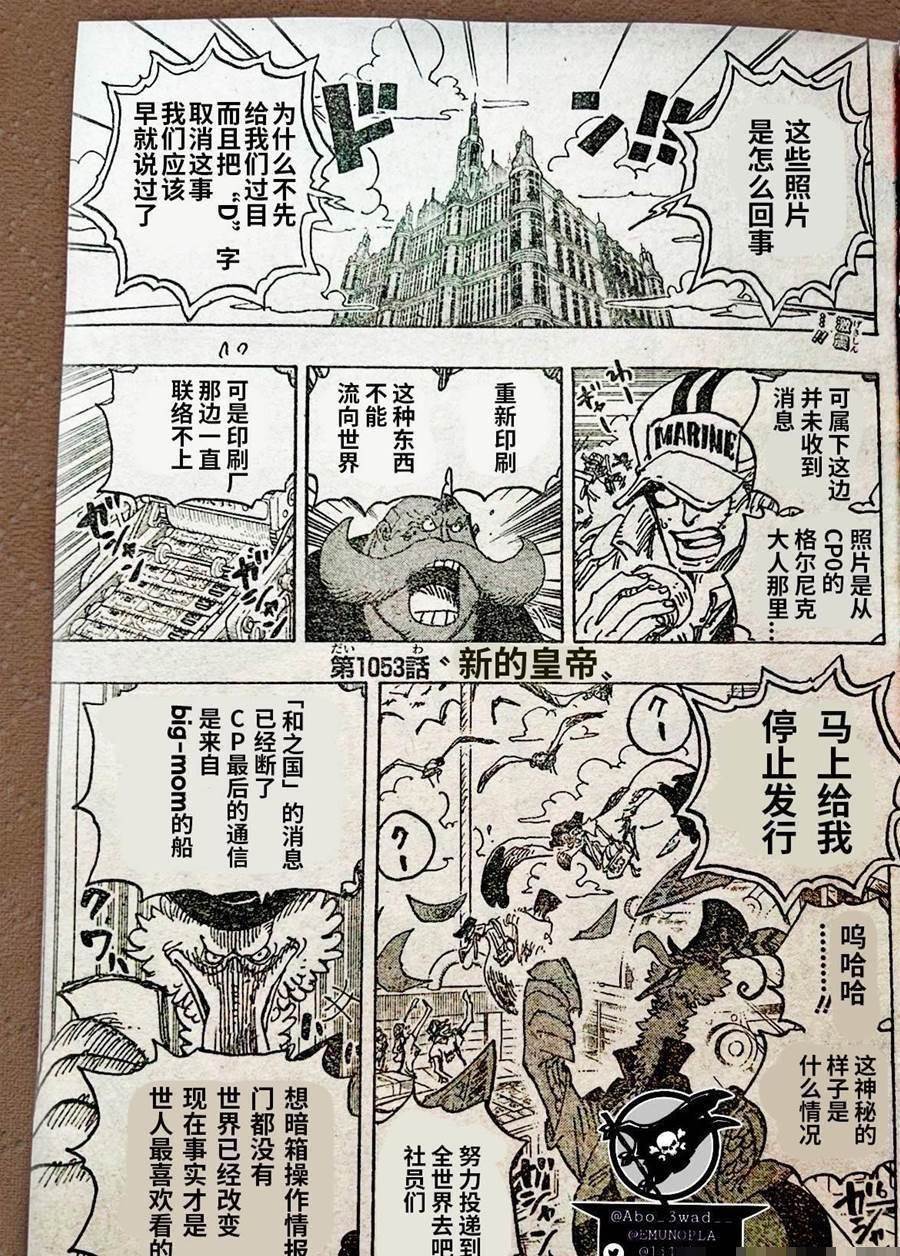 这些照片
是怎么回事
ドン!!
为什么不先
给我们过目
而且把“D”字
取消这事
我们应该
早就说过了
激震
げきしん
…!!
可属下这边
并未收到
消息
照片是从
CP0的
格尔尼克
大人那里…
MARINE
重新印刷
这种东西
不能
流向世界
可是印刷厂
那边一直
联络不上
ガシャン
ガシャン
だい わ
第1053話〝新的皇帝〟
马上给我
停止发行
呜哈哈
………!!
这神秘的
样子是
什么情况
クー
クー
努力投递到
全世界去吧
社员们
「和之国」的消息
已经断了
CP最后的通信
是来自
big-mom的船
クワッ
想暗箱操作情报
门都没有
世界已经改变
现在事实才是
世人最喜欢看的
@Abo_3wad__
@EMUNOPLA